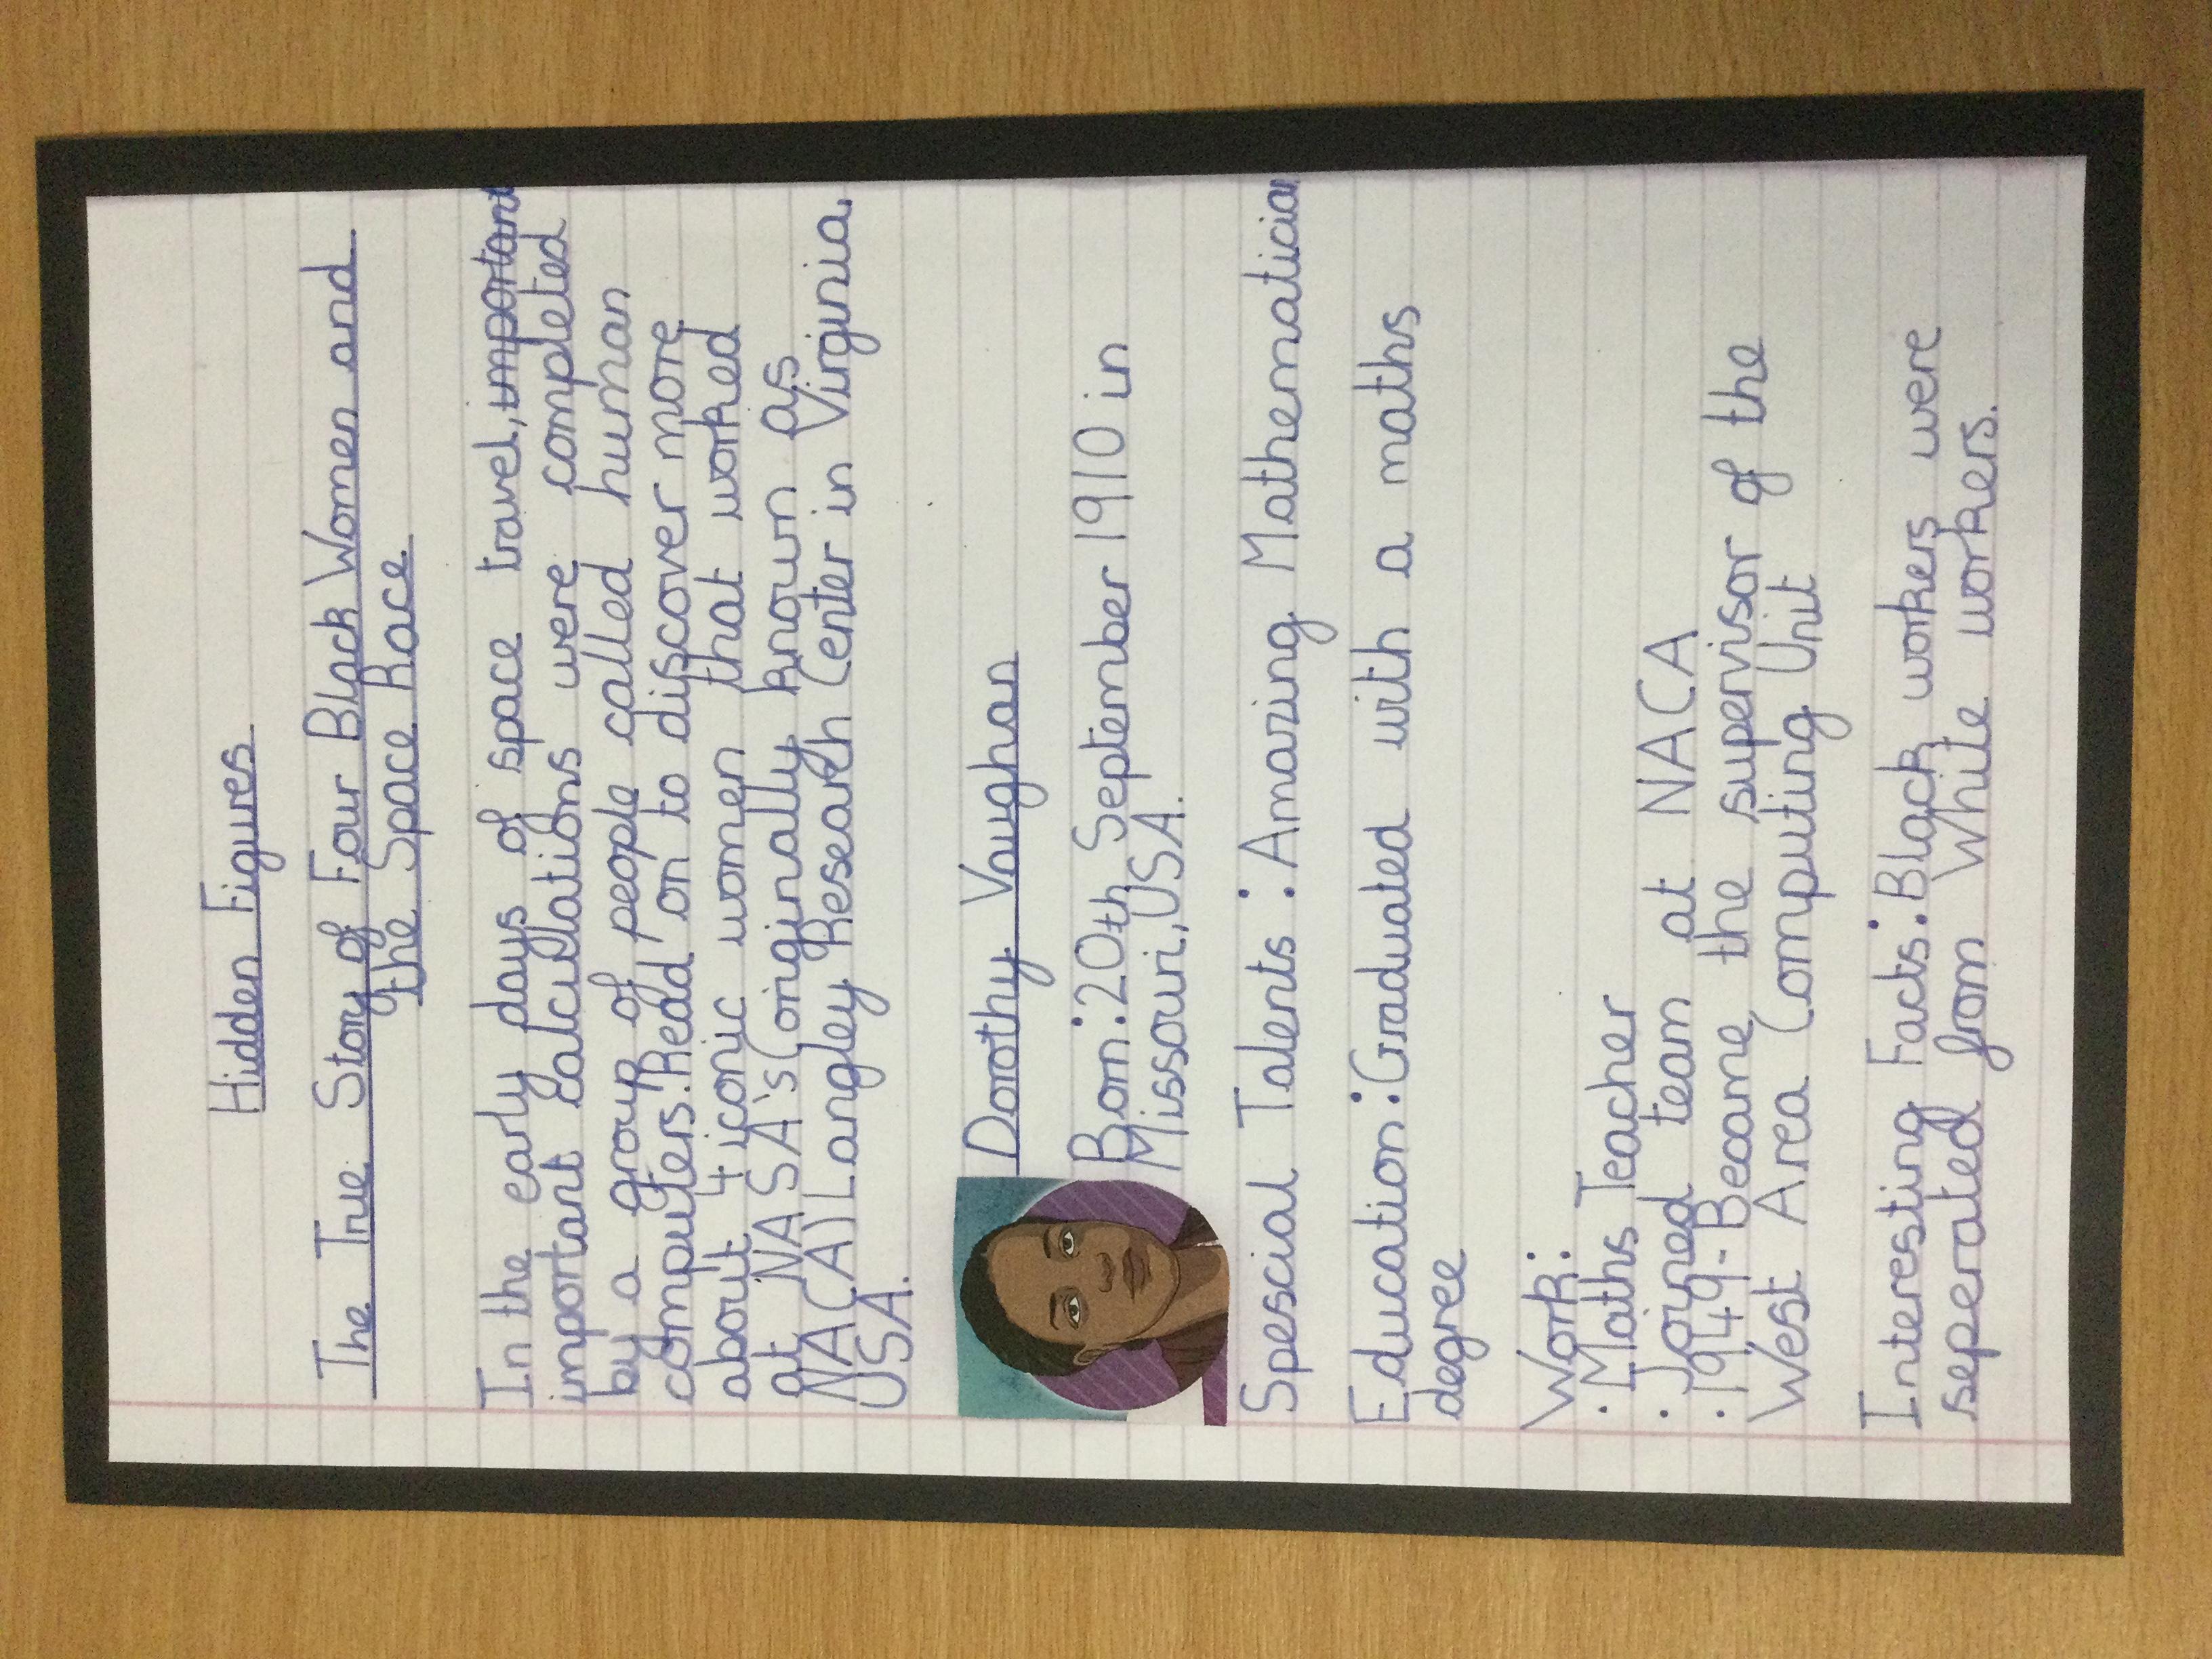 Hidden Figures
The True Story of Four Black Women and
the Space Race
In the early days of space travel, important
important calculations were completed
by a group of people called human
computers. Read on to discover more
about 4 iconic women that worked
at NASA's (originally known as
NACA) Langley Research Center in Virginia,
USA.
Dorothy Vaughan
Born: 20th September 1910 in
Missouri, USA.
Spescial Talents: Amazing Mathematician
Education: Graduated with a maths
degree
Work:
· Maths Teacher
· Joined team at NACA
· 1949- Became the supervisor of the
West Area Computing Unit
Interesting Facts: Black workers were
seperated from White workers.